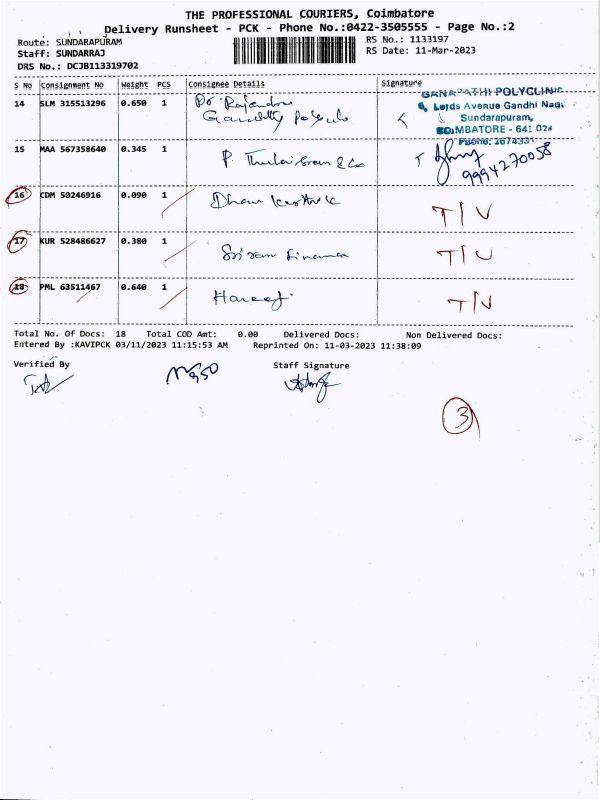 THE PROFESSIONAL COURIERS, Coimbatore
Delivery Runsheet - PCK - Phone No.:0422-3505555 - Page No.:2
Route: SUNDARAPURAM
Staff: SUNDARRAJ
DRS No.: DCJB113319702
RS No.: 1133197
RS Date: 11-Mar-2023
S No Consignment No Weight PCS Consignee Details Signature
14 SLM 315513296 0.650 1 Dr Rajendra
GANAPATHI POLYCLINIC
Lords Avenue Gandhi Nagar
Sundarapuram,
COIMBATORE - 641 024
Phone: 2674331
15 MAA 567358640 0.345 1 P. & Co
9994270058
16 CDM 50246916 0.090 1 T/V
17 KUR 528486627 0.380 1 Sriram Finance T/V
18 PML 63511467 0.640 1 T/V
Total No. Of Docs: 18 Total COD Amt: 0.00 Delivered Docs: Non Delivered Docs:
Entered By :KAVIPCK 03/11/2023 11:15:53 AM Reprinted On: 11-03-2023 11:38:09
Verified By Staff Signature
3